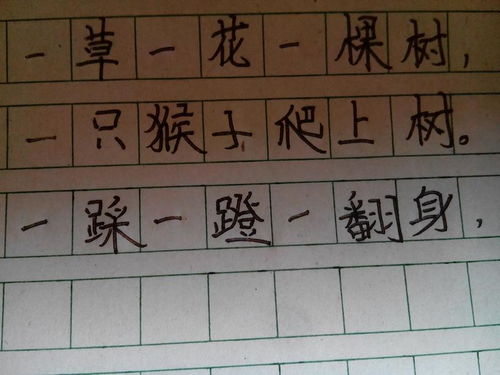 一草一花一棵树,
一只猴子爬上树。
一踩一蹬一翻身,